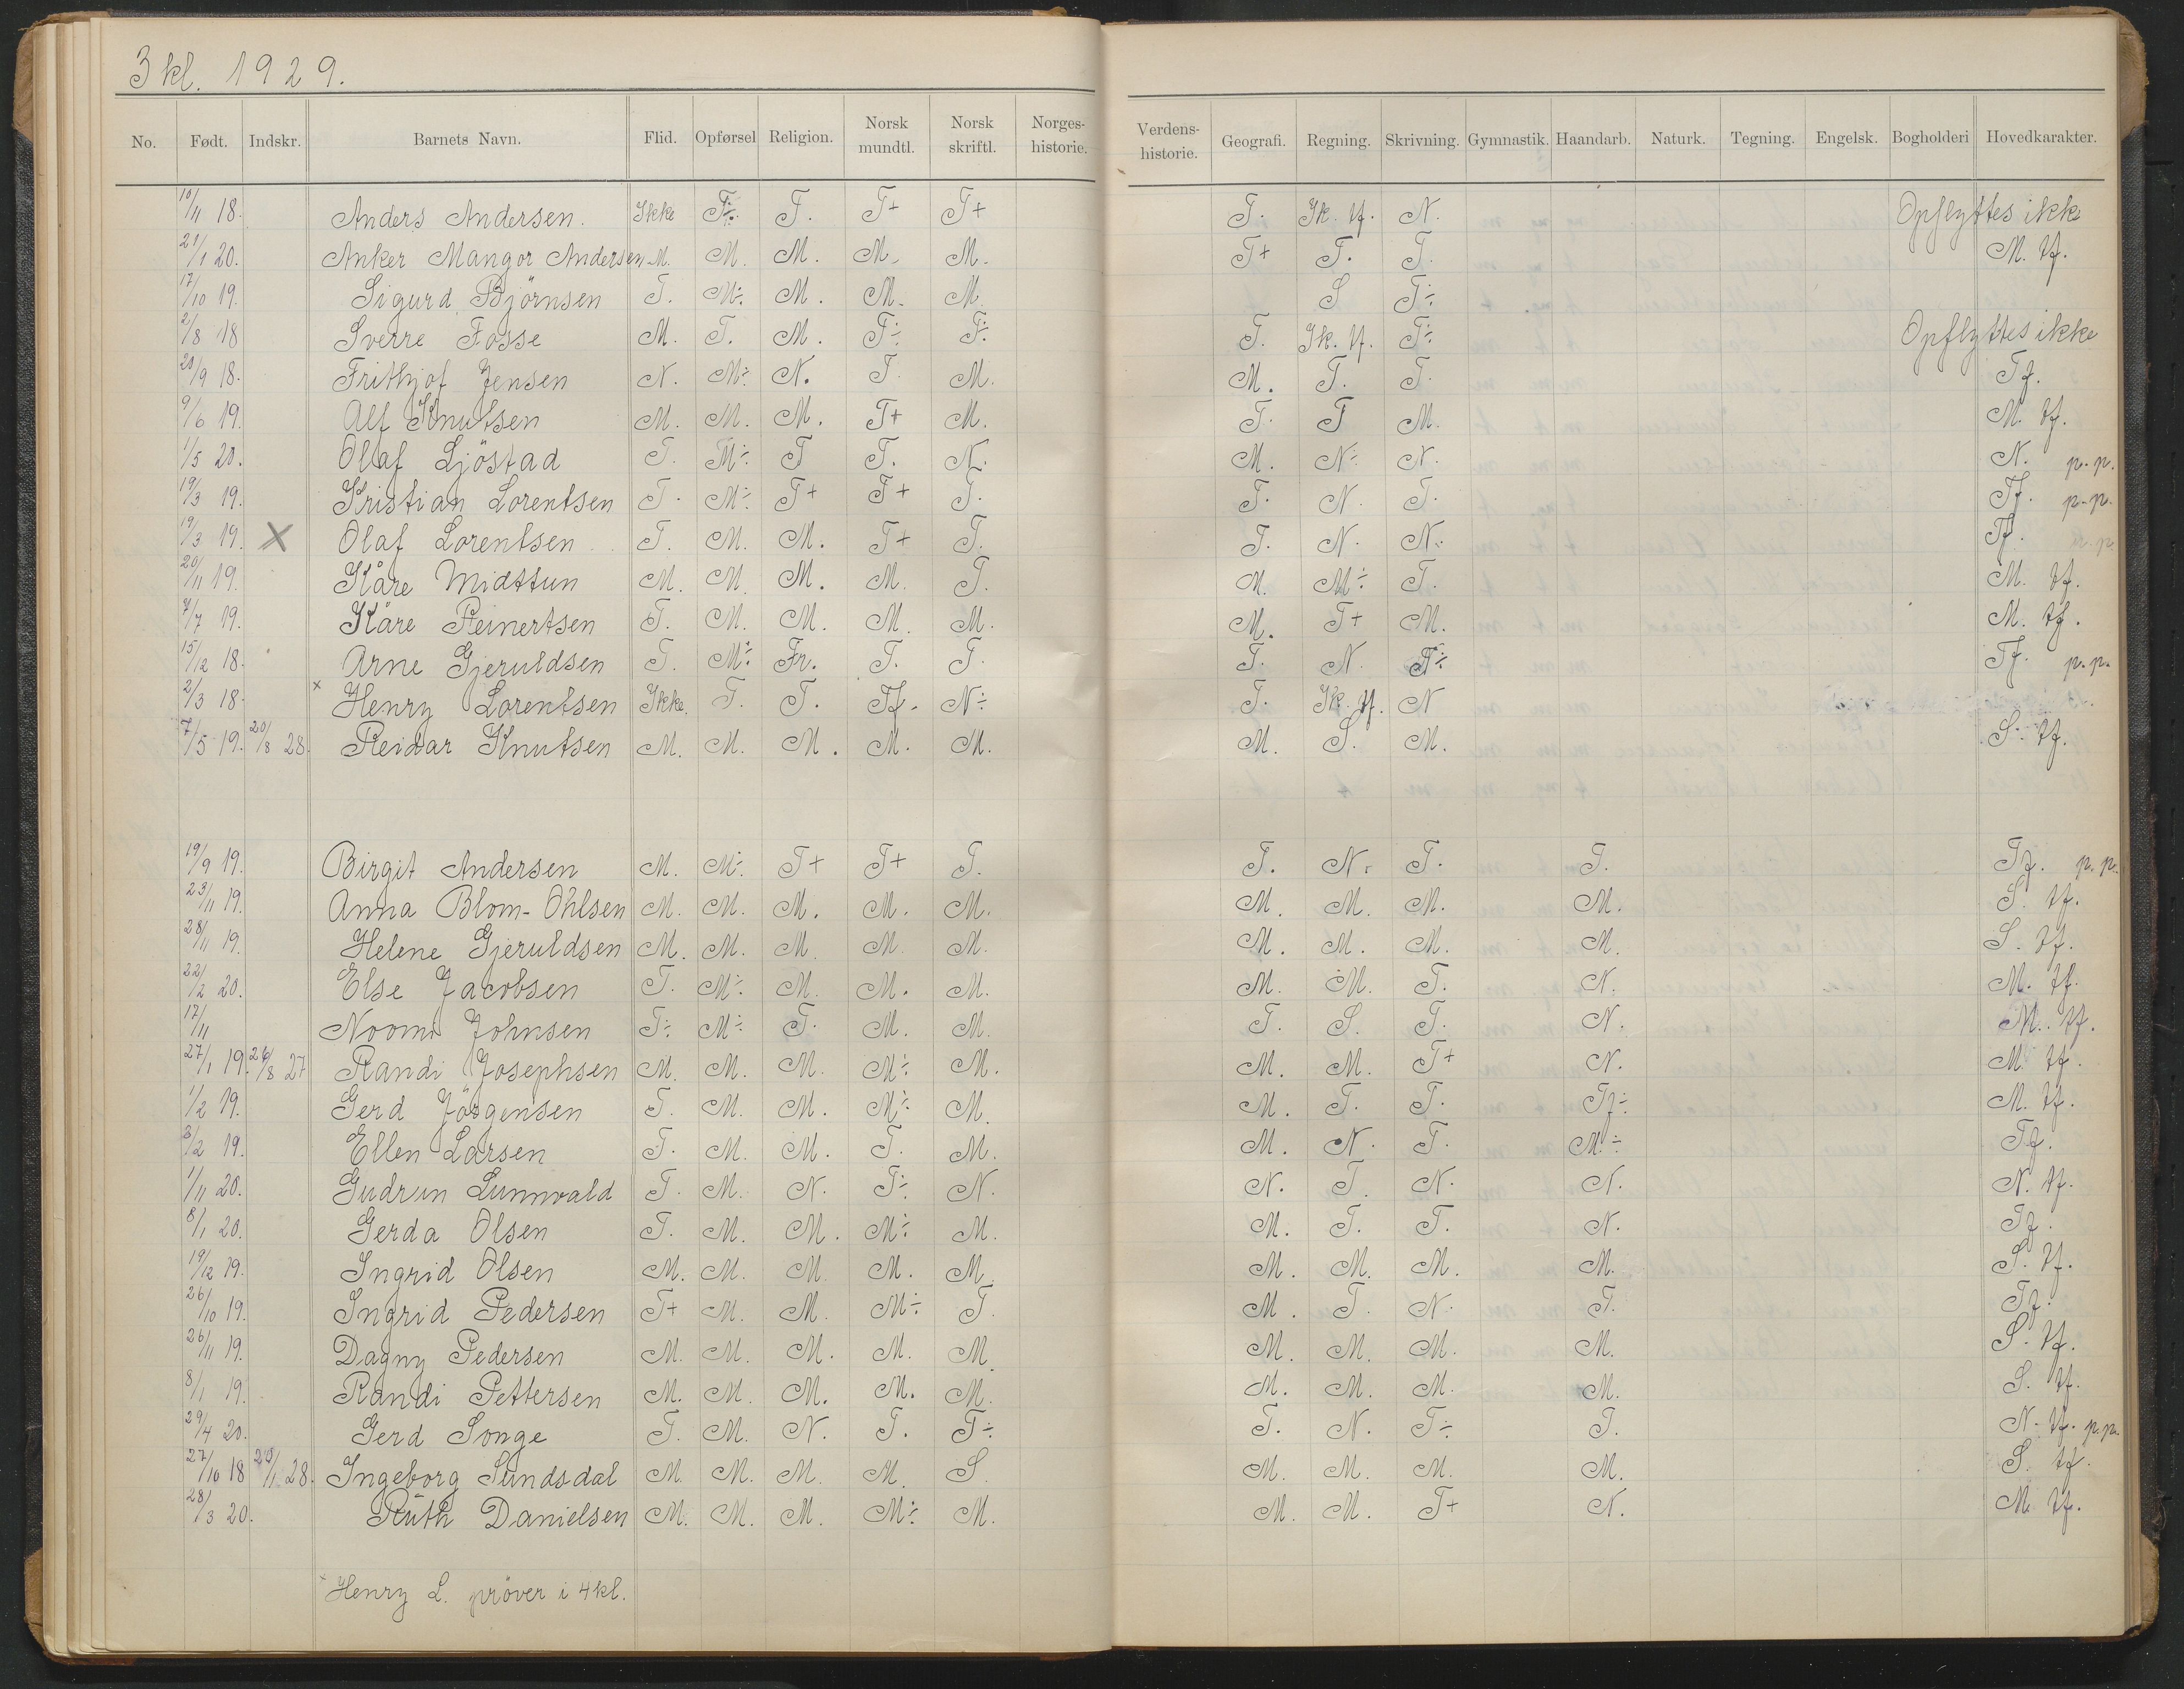 3 kl. 1929.
No. Født. Indskr. Barnets Navn. Flid. Opførsel Religion. Norsk mundtl. Norsk skriftl. Norges-historie. Verdens-historie. Geografi. Regning. Skrivning. Gymnastik. Haandarb. Naturk. Tegning. Engelsk. Bogholderi Hovedkarakter.
10/11 18. Anders Andersen. Ikke T÷. T. T+ T+ T. Ik. tf. N. Opflyttes ikke
21/1 20. Anker Mangor Andersen M. M. M. M. M. T+ T. T. M. tf.
17/10 19. Sigurd Björnsen T. M÷ M. M. M. S T÷
2/8 18 Sverre Fosse M. T. M. T÷ T÷ T. Ik. tf. T÷ Opflyttes ikke
20/9 18. Frithjof Jensen N. M÷ N. T. M. M. T. T. Tf.
9/6 19. Alf Knutsen M. M. M. T+ M. T. T M. M. tf.
1/5 20. Olaf Ljöstad T. M÷ T T. N. M. N÷ N. N. p.p.
19/3 19. Kristian Lorentsen T. M÷ T+ T+ T. T. N. T. Tf. p.p.
19/3 19. X Olaf Lorentsen T. M. M. T+ T. T. N. N. Tf. p.p.
20/11 19. Kåre Midttun M. M. M. M. T. M. M÷ T. M. tf.
7/7 19. Kåre Reinertsen T. M. M. M. M. M. T+ M. M. tf.
15/12 18. Arne Gjeruldsen T. M÷ Fr. T. T. T. N. T÷ Tf. p.p.
2/3 18. x Henry Lorentsen Ikke. T. T. Tf. N÷ T. Ik. tf. N
7/5 19. 20/8 28. Reidar Knutsen M. M. M. M. M. M. S. M. S. tf.
19/9 19. Birgit Andersen M. M÷ T+ T+ T. T. N. T. T. Tf. p.p.
23/11 19. Anna Blom-Ohlsen M. M. M. M. M. M. M. M. M. S. tf.
28/11 19. Helene Gjeruldsen M. M. M. M. M. M. M. M. M. S. tf.
22/2 20. Else Jacobsen T. M÷ M. M. M. M. M. T. N. M. tf.
17/11 Noomi Johnsen T÷ M÷ T. M. M. T. S. T. N. M. tf.
27/1 19. 26/8 27 Randi Josephsen M. M. M. M÷ M. M. M. T+ N. M. tf.
1/2 19. Gerd Jörgensen T. M. M. M÷ M. M. T. T. Tf÷ M. tf.
3/2 19. Ellen Larsen T. M. M. T. M. M. N. T. M÷ Tf.
1/11 20. Gudrun Lunnvald T. M. N. T÷ N. N. T. N. N. N. tf.
8/1 20. Gerda Olsen T. M. M. M÷ M. M. T. T. N. Tf.
19/12 19. Ingrid Olsen M. M. M. M. M. M. M. M. M. S. tf.
26/10 19. Ingrid Pedersen T+ M. M. M÷ T. M. T. N. T. Tf.
26/11 19. Dagny Pedersen M. M. M. M. M. M. M. M. M. S. tf.
8/1 19. Randi Pettersen M. M. M. M. M. M. M. M. M. S. tf.
29/4 20. Gerd Songe T. M. N. T. T÷ T. N. T÷ T. N. tf. p.p.
27/10 18 28. Ingeborg Sundsdal M. M. M. M. S. M. M. M. M. S. tf.
28/3 20. Ruth Danielsen M. M. M. M÷ M. M. M. T+ N. M. tf.
x Henry L. pröver i 4 kl.